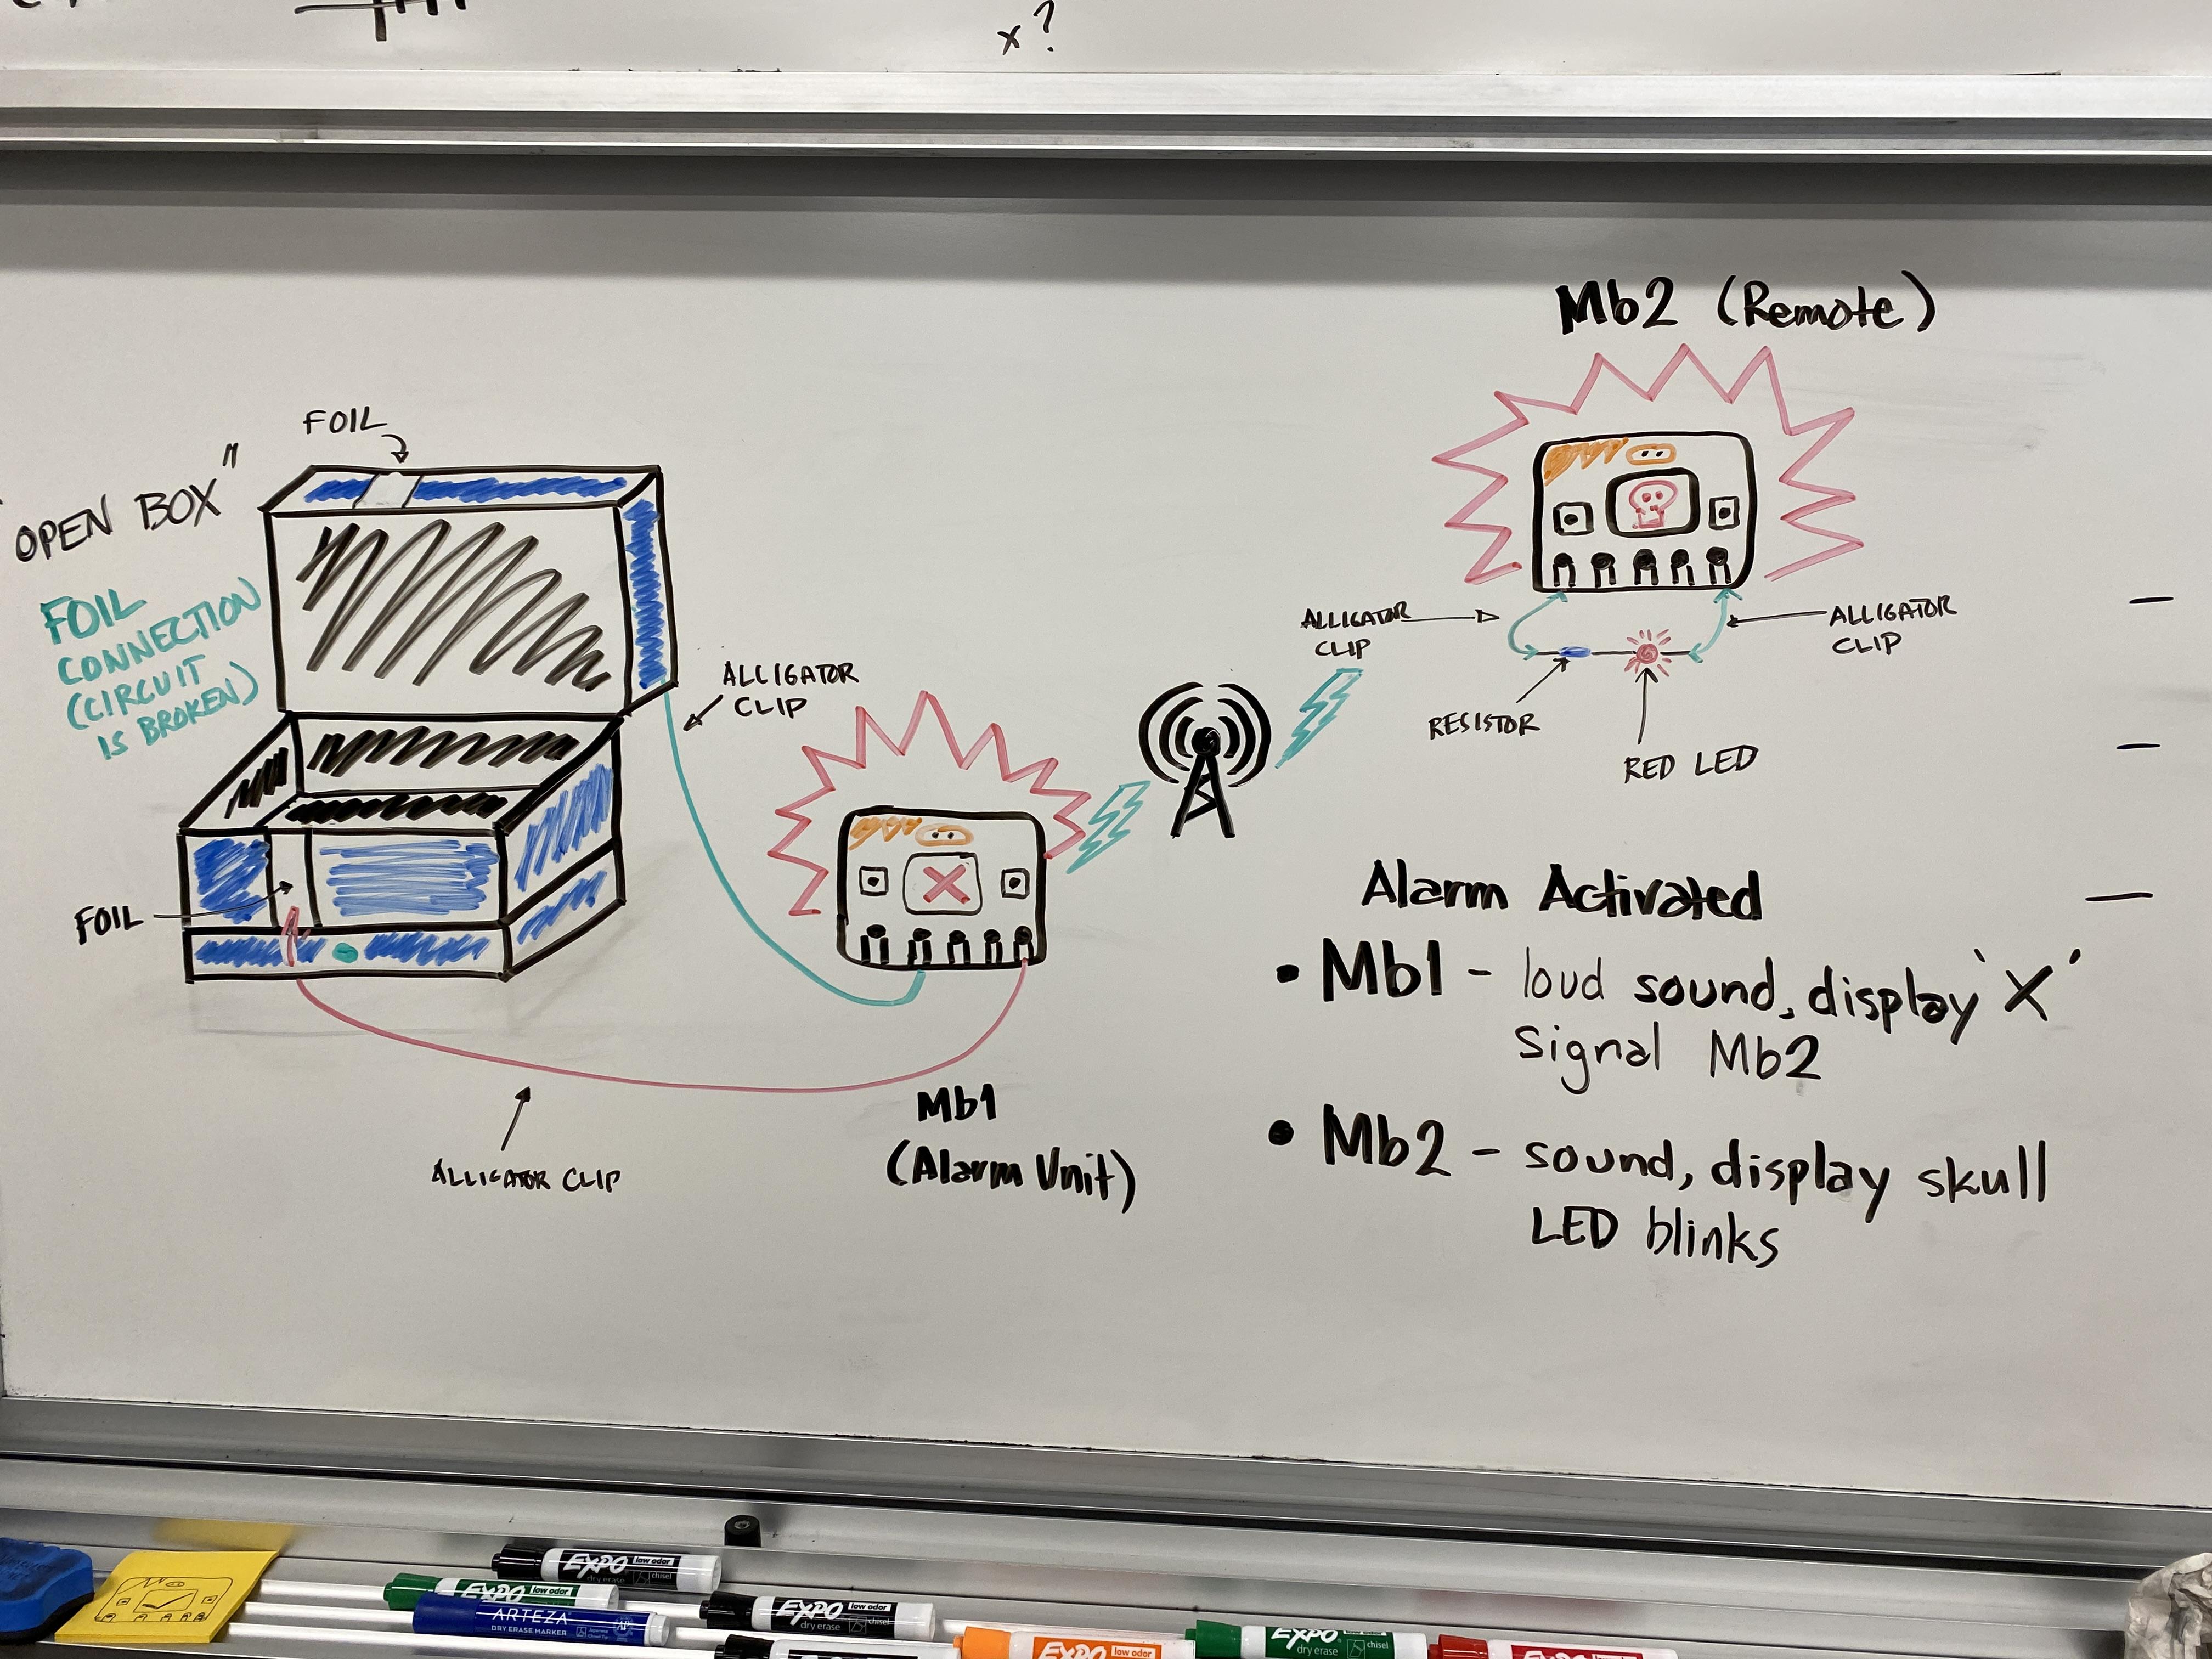 x?
Mb2 (Remote)
FOIL
OPEN BOX"
FOIL
CONNECTION
(CIRCUIT
IS BROKEN)
ALLIGATOR
CLIP
ALLIGATOR
CLIP
ALLIGATOR
CLIP
RESISTOR
RED LED
FOIL
X
Alarm Activated
• Mb1 - loud sound, display 'X'
Signal Mb2
• Mb2 - sound, display skull
LED blinks
Mb1
(Alarm Unit)
ALLIGATOR CLIP
EXPO low odor
dry erase chisel
EXPO low odor
ARTEZA
DRY ERASE MARKER
EXPO low odor
dry erase chisel
EXPO low odor
dry erase
EXPO low odor
dry erase chisel
EXPO low odor